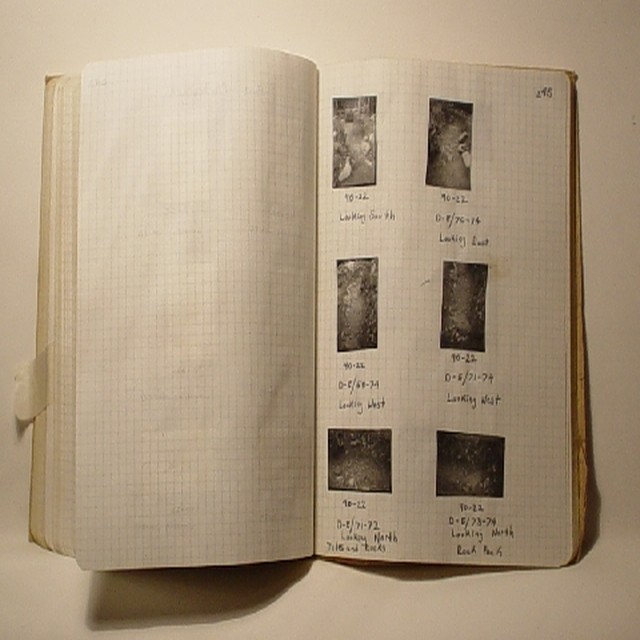 90-22
Looking South
90-22
Looking East
90-22
D-E/68-74
Looking West
90-22
D-E/71-74
Looking West
90-22
D-E/71-72
Looking North
Tiles and Rocks
90-22
D-E/73-74
Looking North
Rock Pack